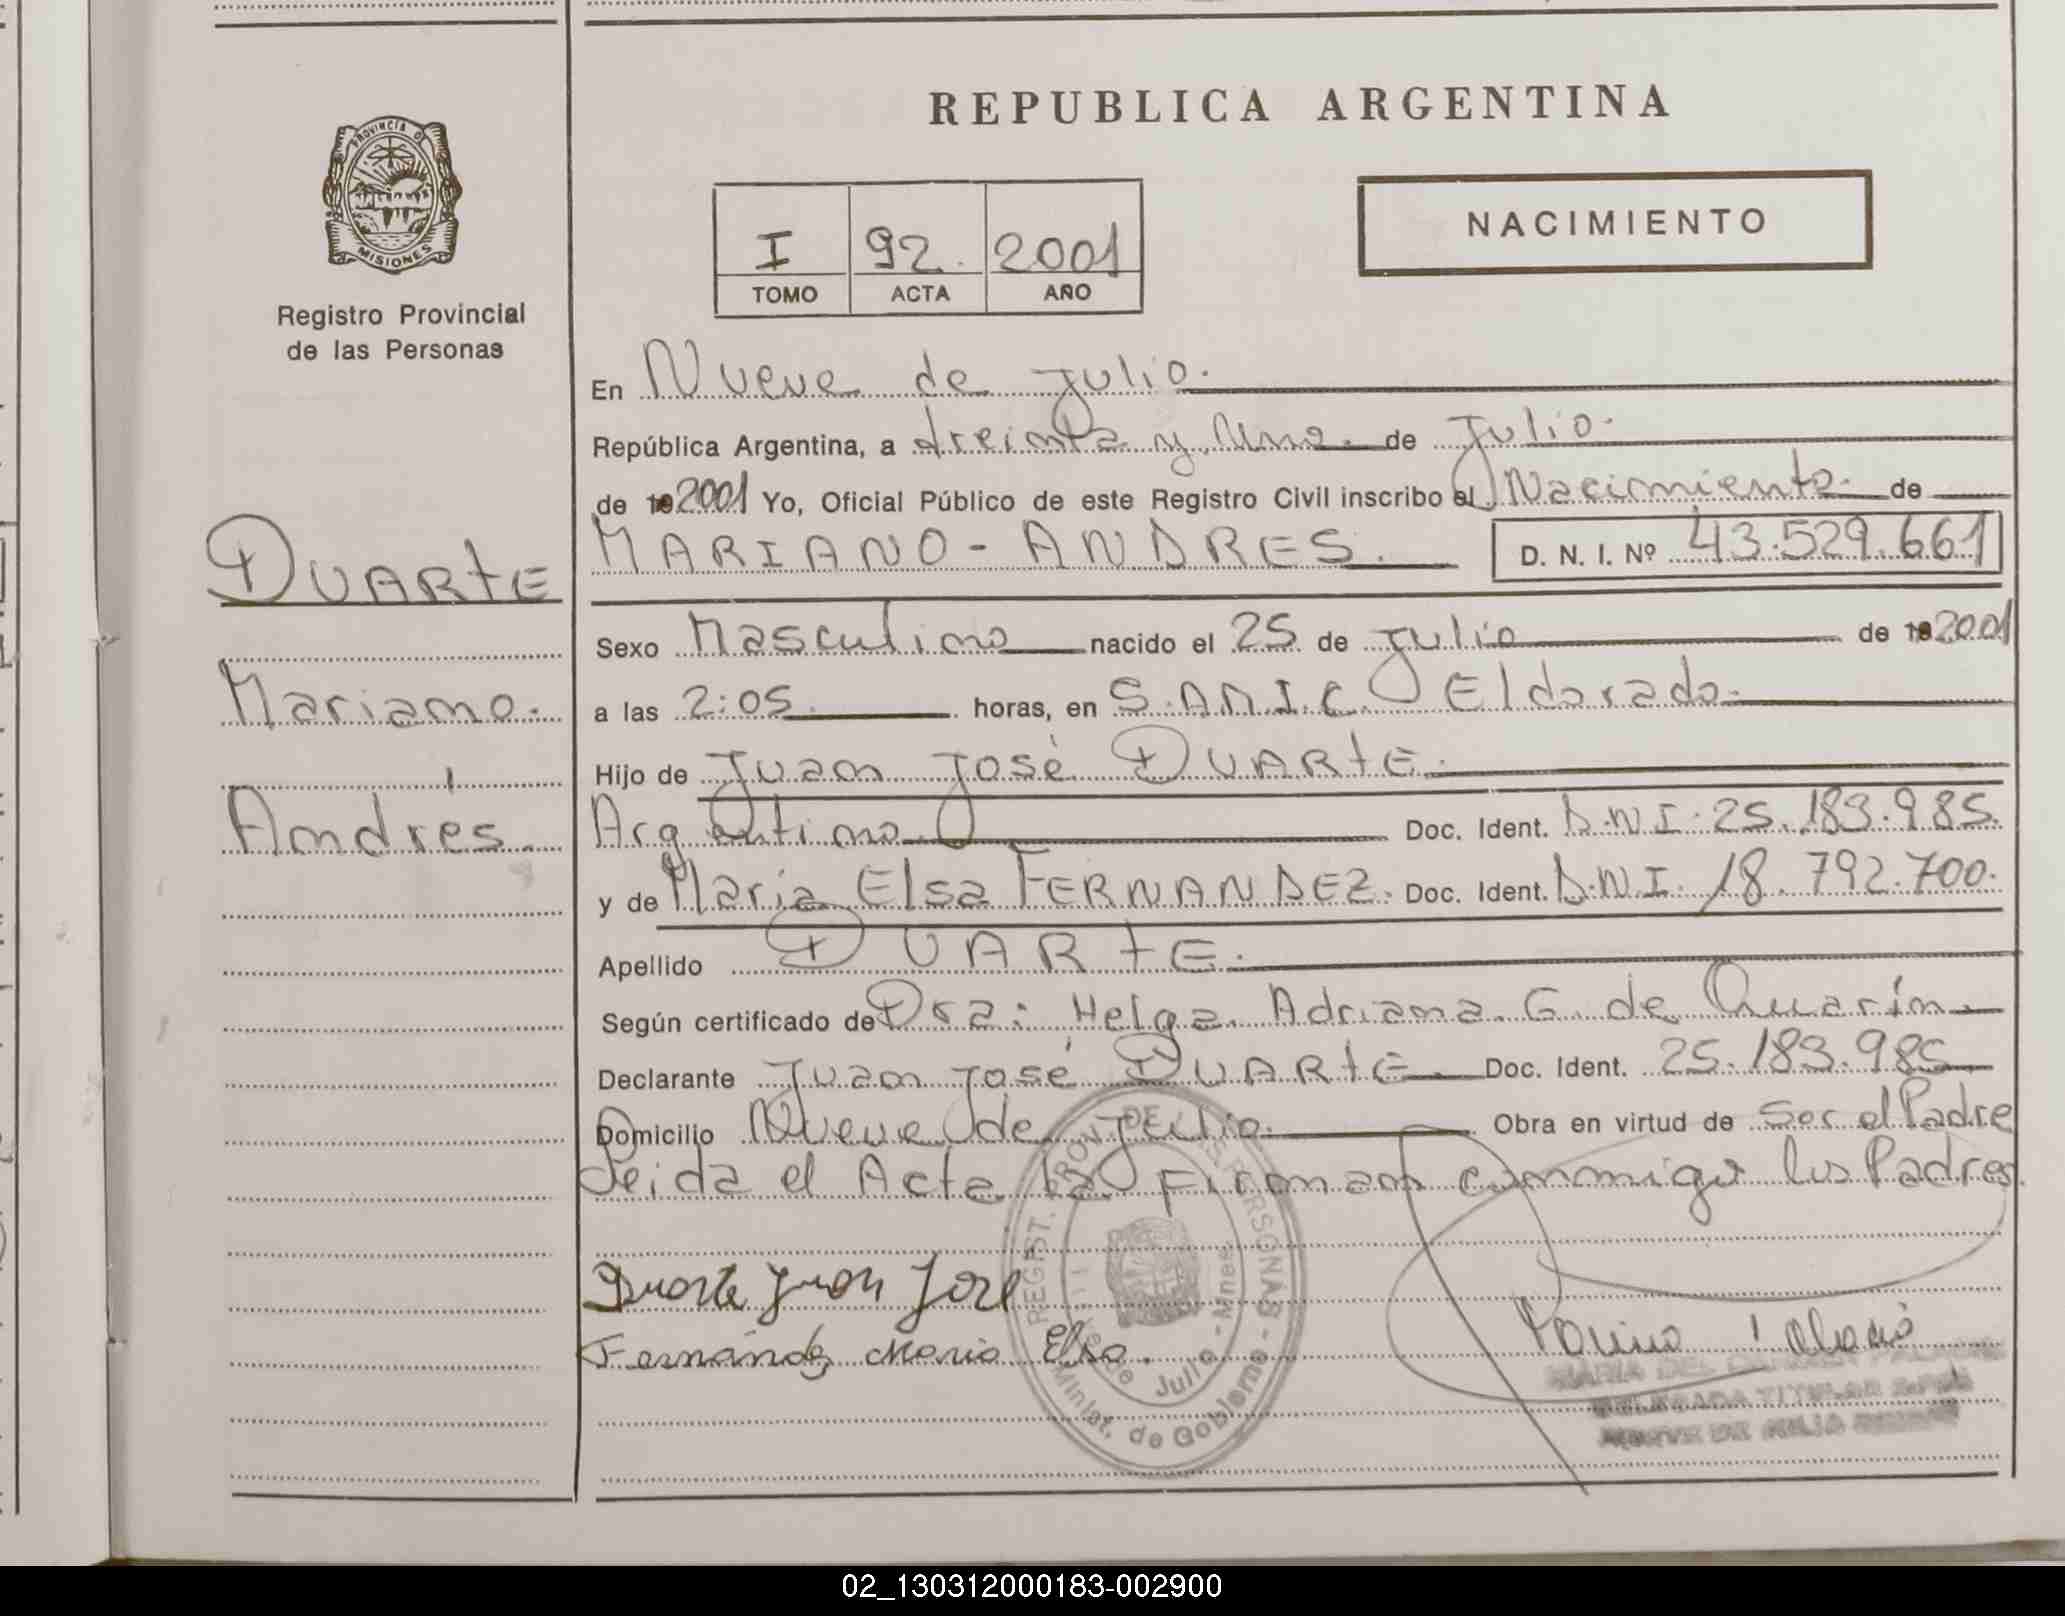 REPUBLICA ARGENTINA
PROVINCIA DE
MISIONES
Registro Provincial
de las Personas
I 92. 2001
TOMO ACTA AÑO
NACIMIENTO
En Nueve de Julio.
República Argentina, a treinta y uno. de Julio.
de 19 2001 Yo, Oficial Público de este Registro Civil inscribo el Nacimiento. de
DUARTE
Mariano.
Andrés.
MARIANO - ANDRES. D. N. I. Nº 43.529.661
Sexo Masculino nacido el 25 de Julio de 19 2001
a las 2:05. horas, en S.A.M.I.C. Eldorado.
Hijo de Juan José DUARTE.
Argentino. Doc. Ident. D.N.I. 25.183.985.
y de Maria Elsa FERNANDEZ. Doc. Ident. D.N.I. 18.792.700.
Apellido DUARTE.
Según certificado de Dra: Helga Adriana G. de
Declarante Juan José DUARTE. Doc. Ident. 25.183.985
Domicilio Nueve de Julio. Obra en virtud de Ser el Padre
Leida el Acta la Firman conmigo los Padres.
REGIST. PROV. DE LAS PERSONAS -
Nueve de Julio - Mnes.
Minist. de Gobierno
Duarte Juan José
Fernández Maria Elsa.
MARIA DEL CARMEN
DELEGADA TITULAR
NUEVE DE JULIO
02_130312000183-002900